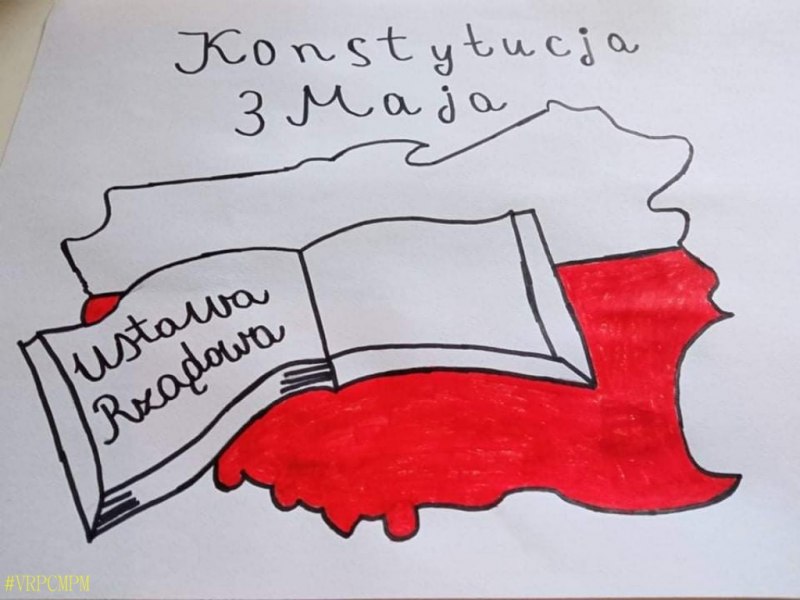 Konstytucja
3 Maja
Ustawa
Rządowa
#VRPCMPM